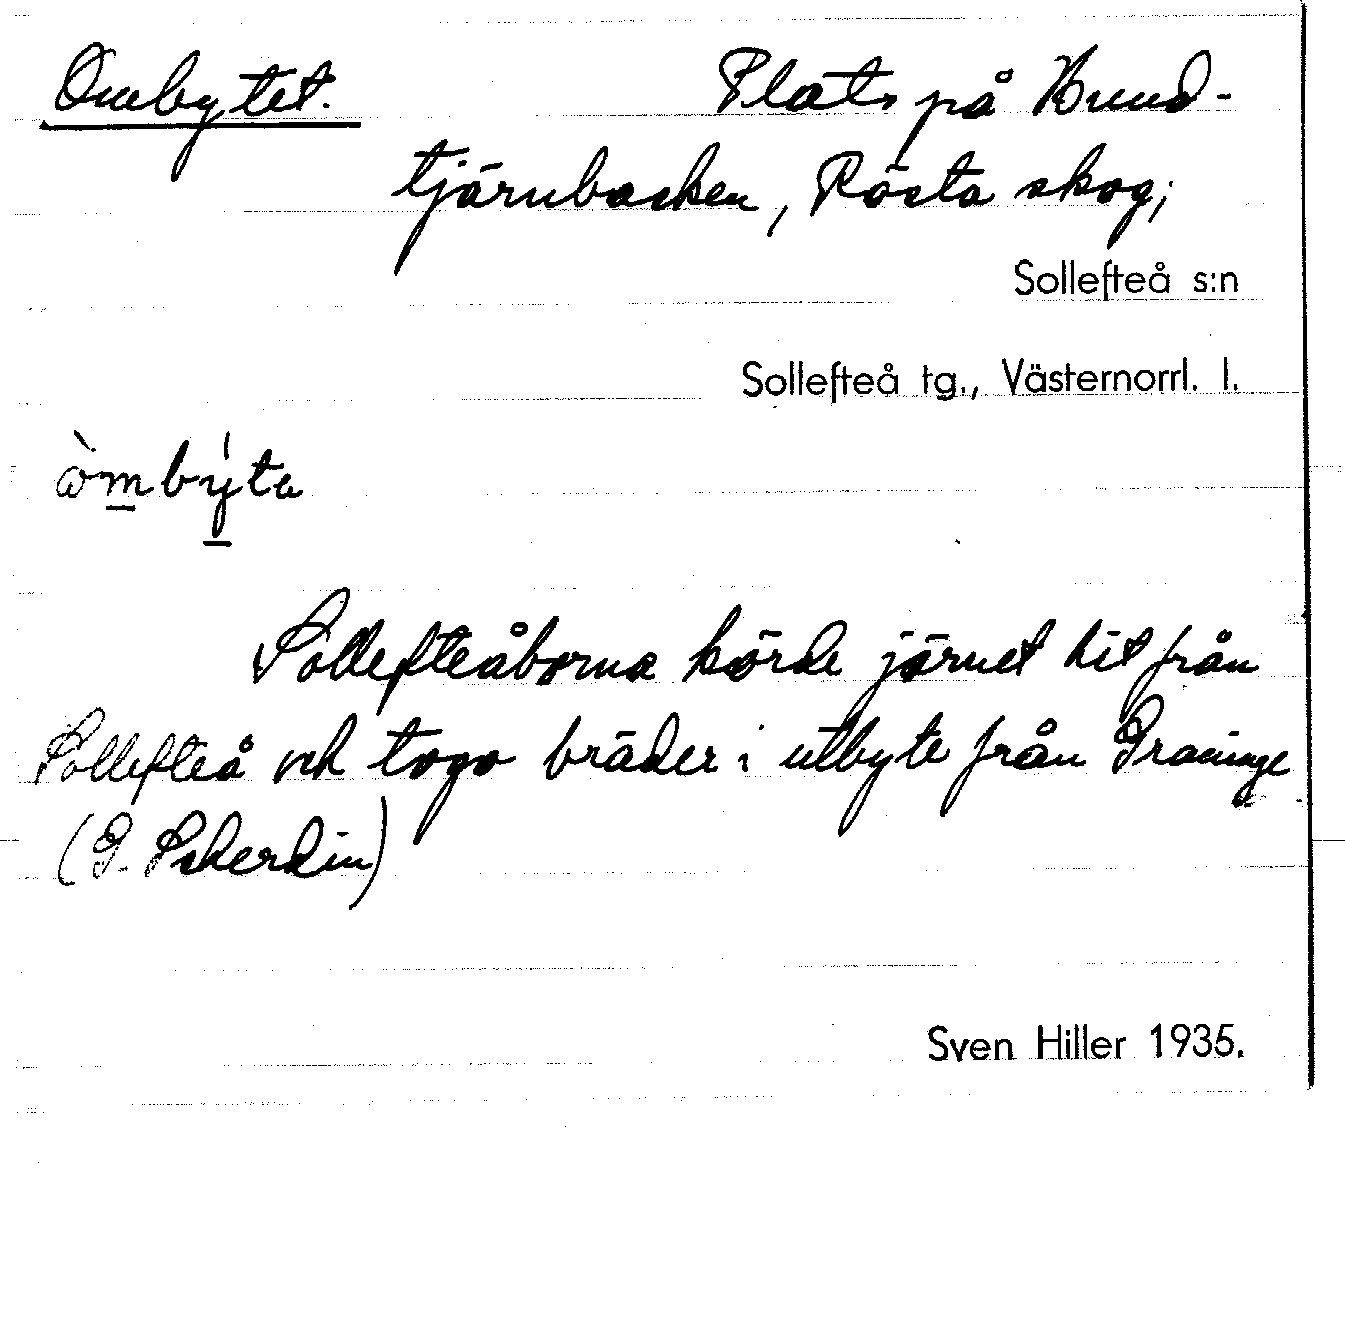 Ombytet. Plats på Hund-
tjärnbacken, Rösta skog;
Sollefteå s:n
Sollefteå tg., Västernorrl. l.
òmbý̗ta
Sollefteåborna körde järnet hit från
Sollefteå och togo bräder i utbyte från Graninge
(G. Scherdin)
Sven Hiller 1935.